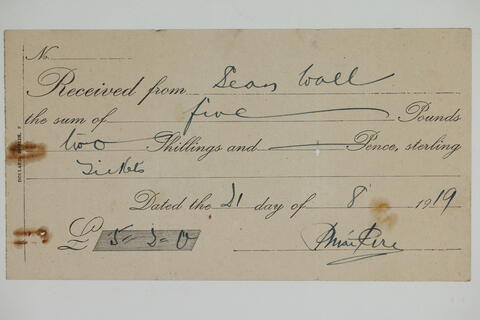 No.
Received from Sean Wall
the sum of five Pounds
two Shillings and Pence, sterling
Tickets
Dated the 21 day of 8 1919
£ 5 = 2 = 0